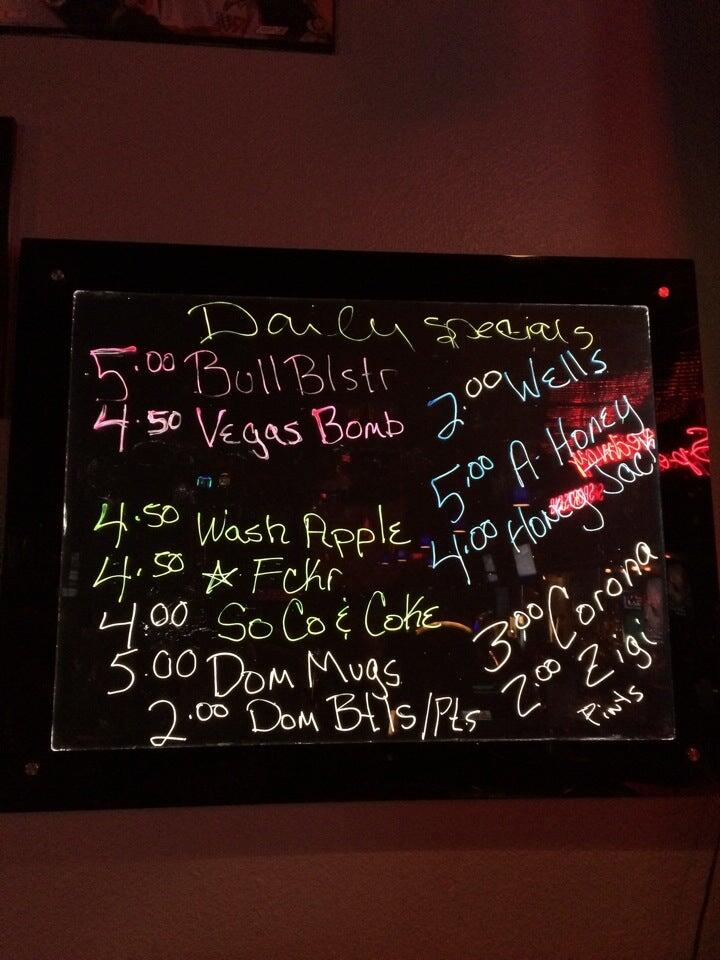 Daily Specials
5.00 Bull Blstr
4.50 Vegas Bomb
4.50 Wash Apple
4.50 ☆ Fckr
4.00 So Co & Coke
5.00 Dom Mugs
2.00 Dom Btls/Pts
2.00 Wells
5.00 A-Honey
4.00 Honey Jack
3.00 Corona
2.00 Zigi
Pints